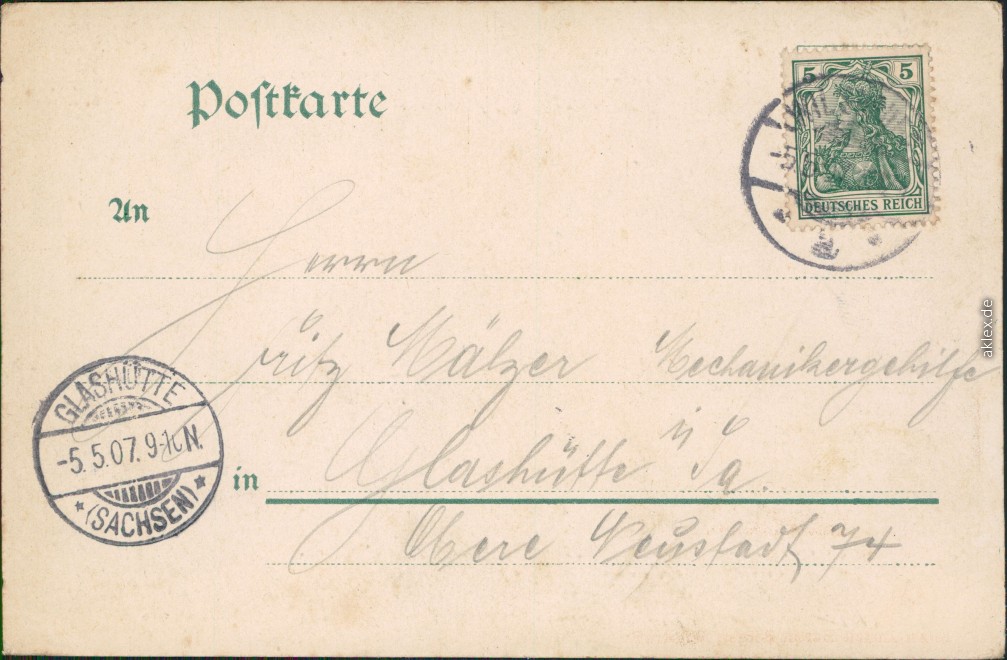 Postkarte
5 5
DEUTSCHES REICH
An
Herrn
Fritz Mälzer Mechanikergehilfe
in Glashütte i Sa.
Obere Neustadt 74
GLASHÜTTE
-5.5.07. 9-10 N.
*(SACHSEN)*
aklex.de